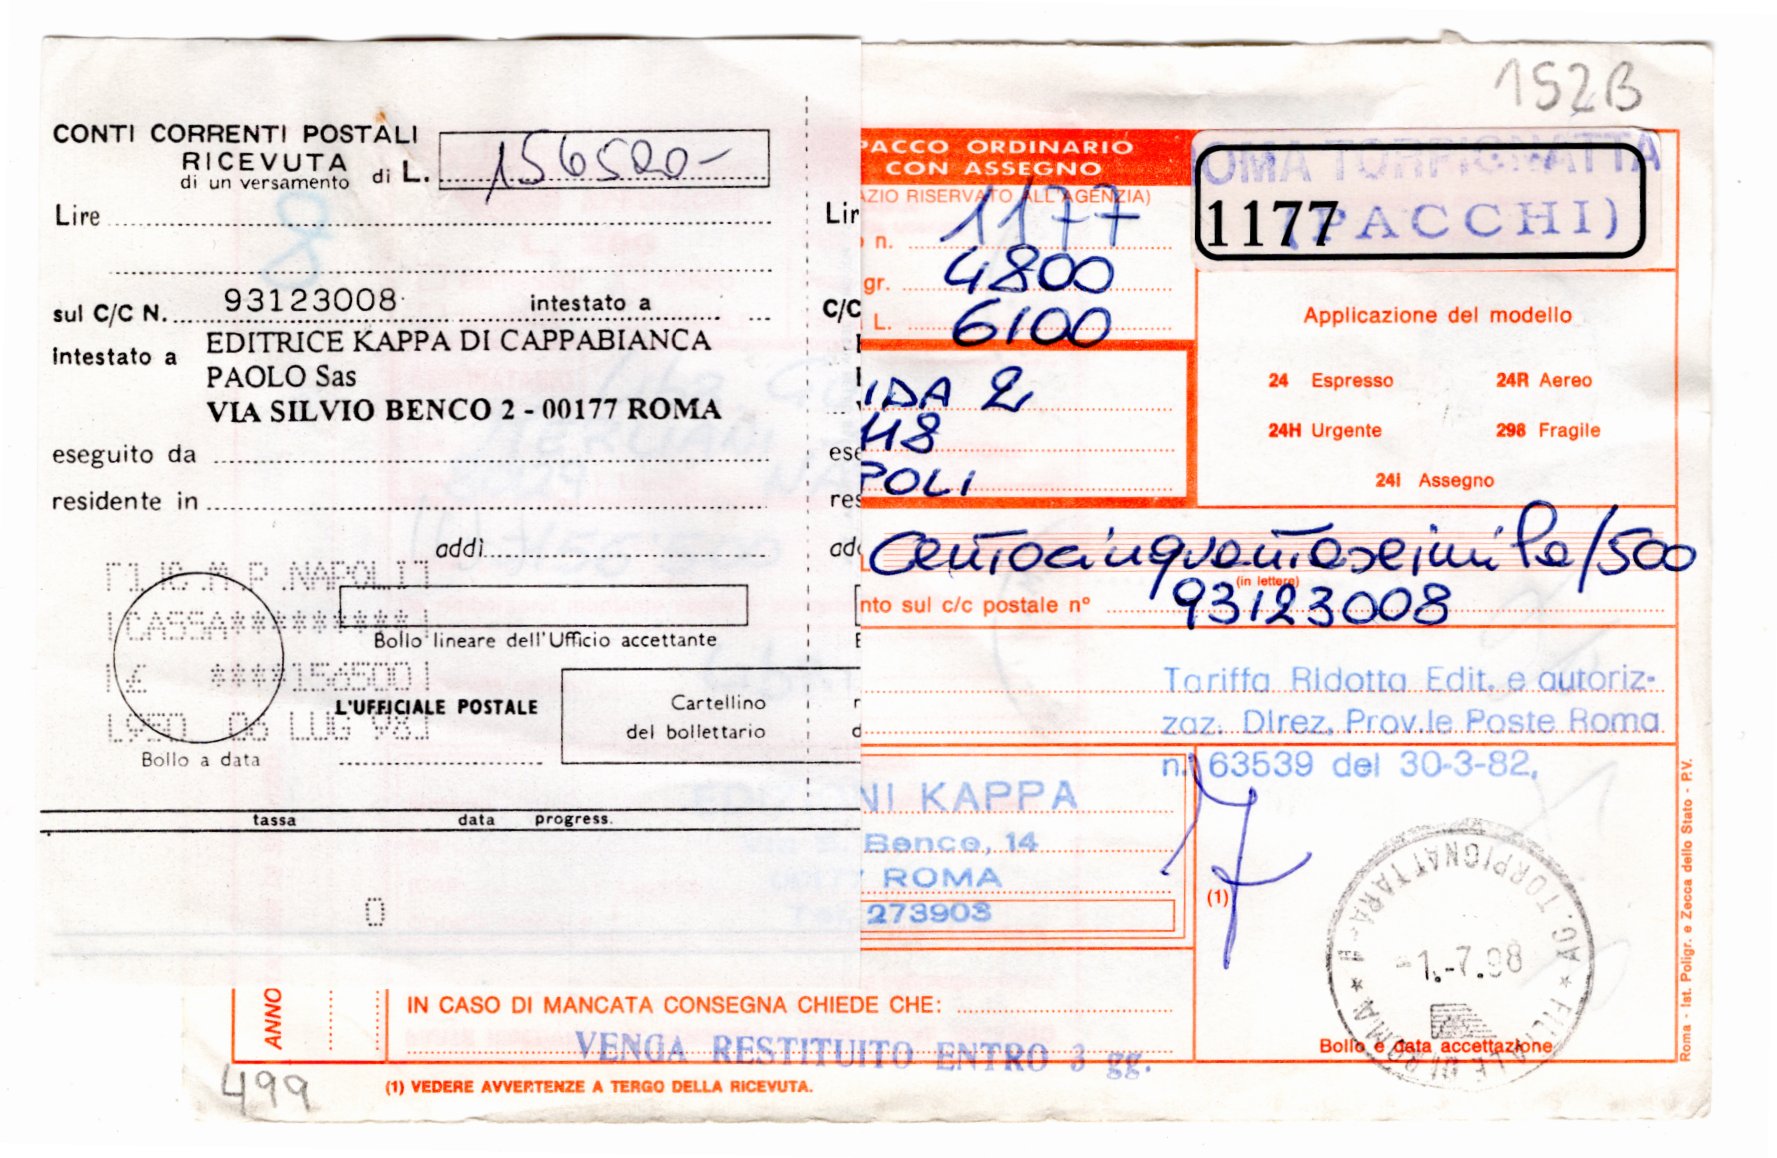 152B
CONTI CORRENTI POSTALI
RICEVUTA
di un versamento di L. 156500-
Lire
sul C/C N. 93123008 intestato a
intestato a EDITRICE KAPPA DI CAPPABIANCA
PAOLO Sas
VIA SILVIO BENCO 2 - 00177 ROMA
eseguito da
residente in
addì
P.NAPOLI
CASSA*********
£ ****156500
06 LUG 98
Bollo lineare dell'Ufficio accettante
L'UFFICIALE POSTALE
Cartellino
del bollettario
Bollo a data
tassa data progress.
0
Lir
C/C
ese
res
add
PACCO ORDINARIO
CON ASSEGNO
AZIO RISERVATO ALL'AGENZIA)
n. 1177
gr. 4800
L. 6100
IDA 2
POLI
ROMA TORPIGNATTA
1177 (PACCHI)
Applicazione del modello
24 Espresso 24R Aereo
24H Urgente 298 Fragile
24I Assegno
Centocinquantaseimila/500
(in lettere)
nto sul c/c postale n° 93123008
Tariffa Ridotta Edit. e autoriz-
zaz. Direz. Prov.le Poste Roma
n. 63539 del 30-3-82,
EDIZIONI KAPPA
Benco, 14
ROMA
273903
(1)
AG. TORPIGNATTARA-A * FILIALE DI ROMA *
-1.-7.98
Bollo e data accettazione
Roma - Ist. Poligr. e Zecca dello Stato - P.V.
ANNO
IN CASO DI MANCATA CONSEGNA CHIEDE CHE:
VENGA RESTITUITO ENTRO 3 gg.
(1) VEDERE AVVERTENZE A TERGO DELLA RICEVUTA.
499